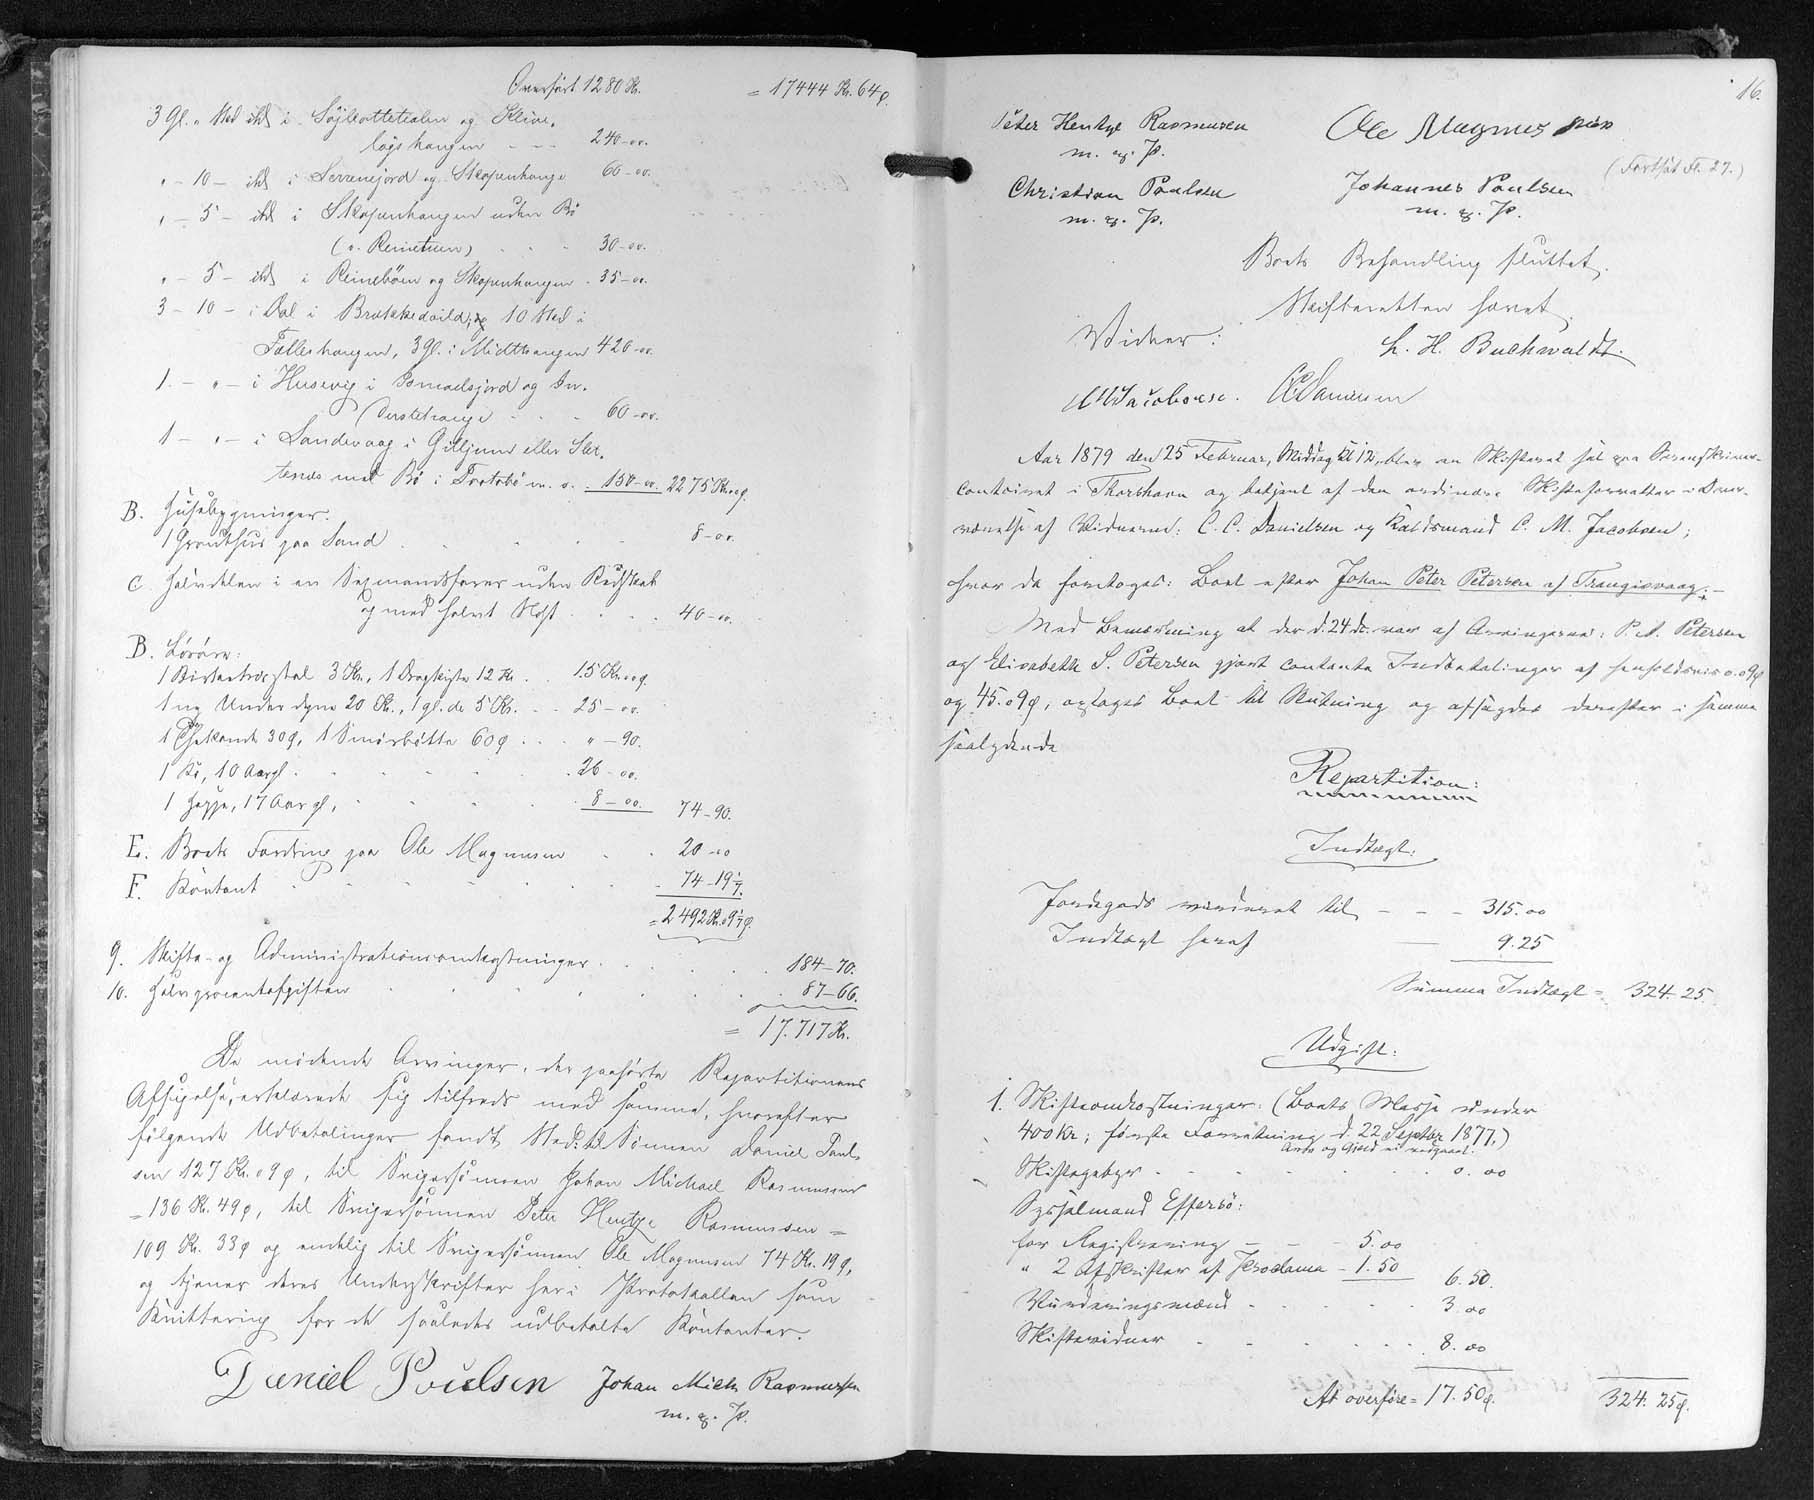 Overført 1280 Kr. = 17444 Kr. 64 ø.
3 Gl. " Skd ibd i Søjleottetealen og Kleive.
løgshaugen - - - 240-00.
" - 10 - ibd i Serrenejord og Skopenhauge 60-00.
" - 5 - ibd i Skopenhaugen uden Bø
(v. Reinetuen) . . . 30-00.
" - 5 - ibd i Reinebøen og Skopenhaugen . 35-00.
3 - 10 - i Dal i Brækkedaild, 10 Skd i
Fælleshaugen, 3 Gl. i Midthaugen 420-00.
1. - " - i Husevig i
60-00.
1 - " - i Sandevaag i Giljum eller
med Bø i Trøtebø m. v. . 150-00. 2275 Kr. 00 ø.
B. Husebygninger.
1 Grouthus paa Sand . . . . 8-00.
C. Halvdelen i en Sexmandsfarer uden Redskab
og med halvt Nøst . . . . 40-00.
D. Løsøre:
3 Kr., 1 Dragkiste 12 Kr. . . 15 Kr. 00 ø.
1 ny Underdyne 20 Kr., 1 gl. do 5 Kr. . . 25-00.
1 Thekande 30 ø, 1 Smørbøtte 60 ø . . . " - 90.
1 Ko, 10 Aar gl. . . . . 26-00.
1 Hoppe, 17 Aar gl. . . . . 8-00. 74-90.
E. Boets Fordring paa Ole Magnusen . . 20-00
F. Kontant . . . . . 74-19 1/7.
= 2492 Kr. 09 1/7 ø.
9. Skifte- og Administrationsomkostninger . . . . 184-70.
10. Halvprocentafgiften . . . . . 87-66.
= 17.717 Kr.
De mødende Arvinger, der paahørte Repartitionens
Afsigelse, erklærede sig tilfreds med samme, hvorefter
følgende Udbetalinger fandt Sted: til Sønnen Daniel Poul-
sen 127 Kr. 09 ø, til Svigersønnen Johan Michael Rasmussen
= 136 Kr. 49 ø, til Svigersønnen Peter Hentze Rasmussen =
109 Kr. 33 ø og endelig til Svigersønnen Ole Magnusen 74 Kr. 19 ø,
og tjener deres Underskrifter her i Protokollen som
Kvittering for de saaledes udbetalte Kontanter.
Daniel Poulsen Johan Mich Rasmussen
m. p. P.
16.
Peter Hentze Rasmussen Ole Magnus
m. p. P.
(Fortsat Fl. 27.)
Christian Poulsen Johannes Poulsen
m. p. P. m. p. P.
Boets Behandling sluttet.
Skifteretten hævet.
Vidner: L. H. Buchwaldt.
CMJacobsen. CCDanielsen
Aar 1879 den 25 Februar, Middag Kl 12, blev en Skifteret sat paa Sorenskriver-
contoiret i Thorshavn og betjent af den ordinære Skifteforvalter i Over-
værelse af Vidnerne: C. C. Danielsen og Raadsmand C. M. Jacobsen;
hvor da foretoges: Boet efter Johan Peter Petersen af Trangisvaag. -
Med Bemærkning at der d. 24 ds. var af Arvingerne: P. A. Petersen
og Elisabeth S. Petersen gjort contante Indbetalinger af henholdsvis 0.09 ø
og 45.09 ø, optoges Boet til Slutning og afsagdes derefter i samme
saalydende
Repartition:
Indtægt:
Jordegods vurderet til - - - 315.00
Indtægt heraf - 9.25
Summa Indtægt = 324.25.
Udgift:
1. Skifteomkostninger: (Boets Masse under
400 Kr; første Forretning d. 22 Septbr 1877.)
Arv og Gjeld ei vedgaaet.
Skiftegebyr - - - - - 0.00
Sysselmand Effersö:
for Registrering - - - 5.00
" 2 Afskrifter af Proclama - 1.50 6.50.
Vurderingsmænd - - - - 3.00
Skiftevidner - - - - 8.00
At overføre = 17.50 ø. 324.25 ø.